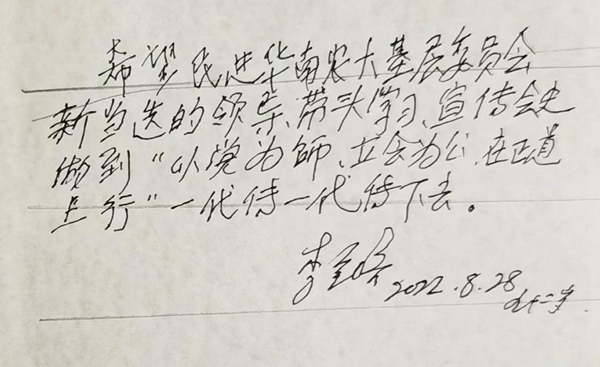 希望民进华南农大基层委员会
新当选的领导、带头学习、宣传会史
做到“以党为师、立会为公、在正道
上行”一代传一代传下去。
李
2022.8.28
十二岁